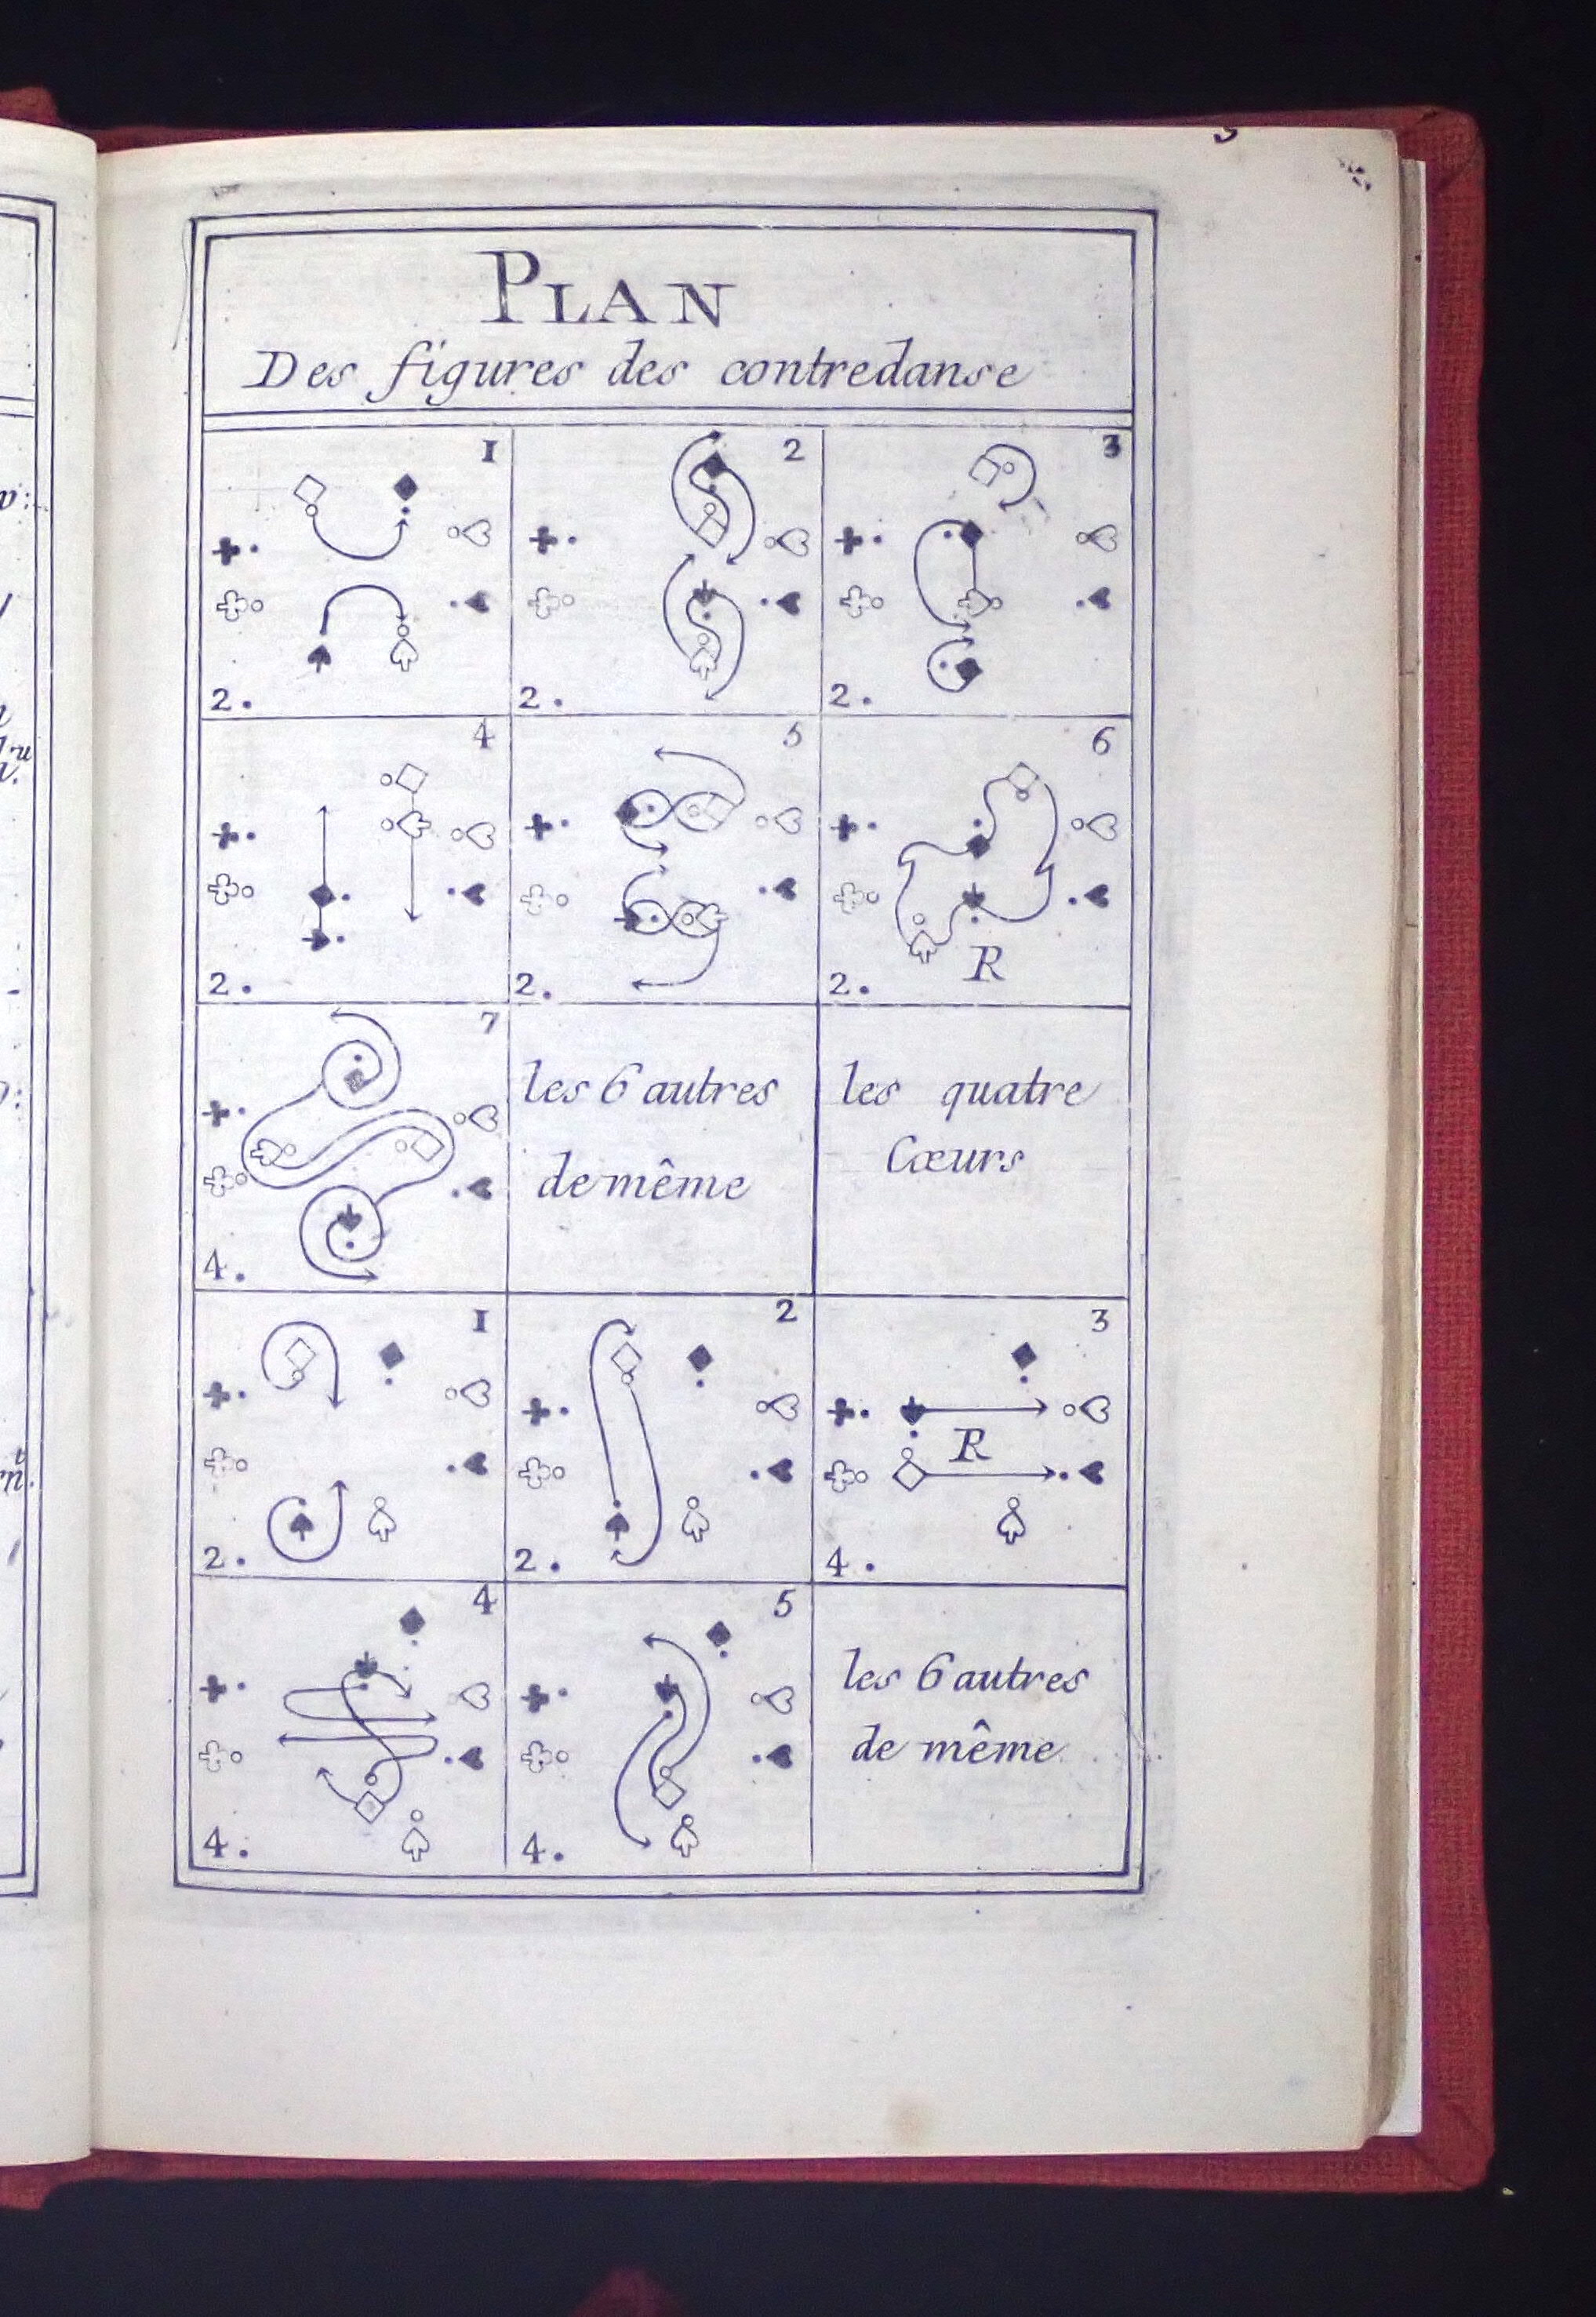 PLAN
Des figures des contredanse
1
2
3
2.
2.
2.
4
5
6
R
2.
2.
2.
7
les 6 autres
de même
les quatre
Cœurs
4.
1
2
3
R
2.
2.
4.
4
5
les 6 autres
de même
4.
4.